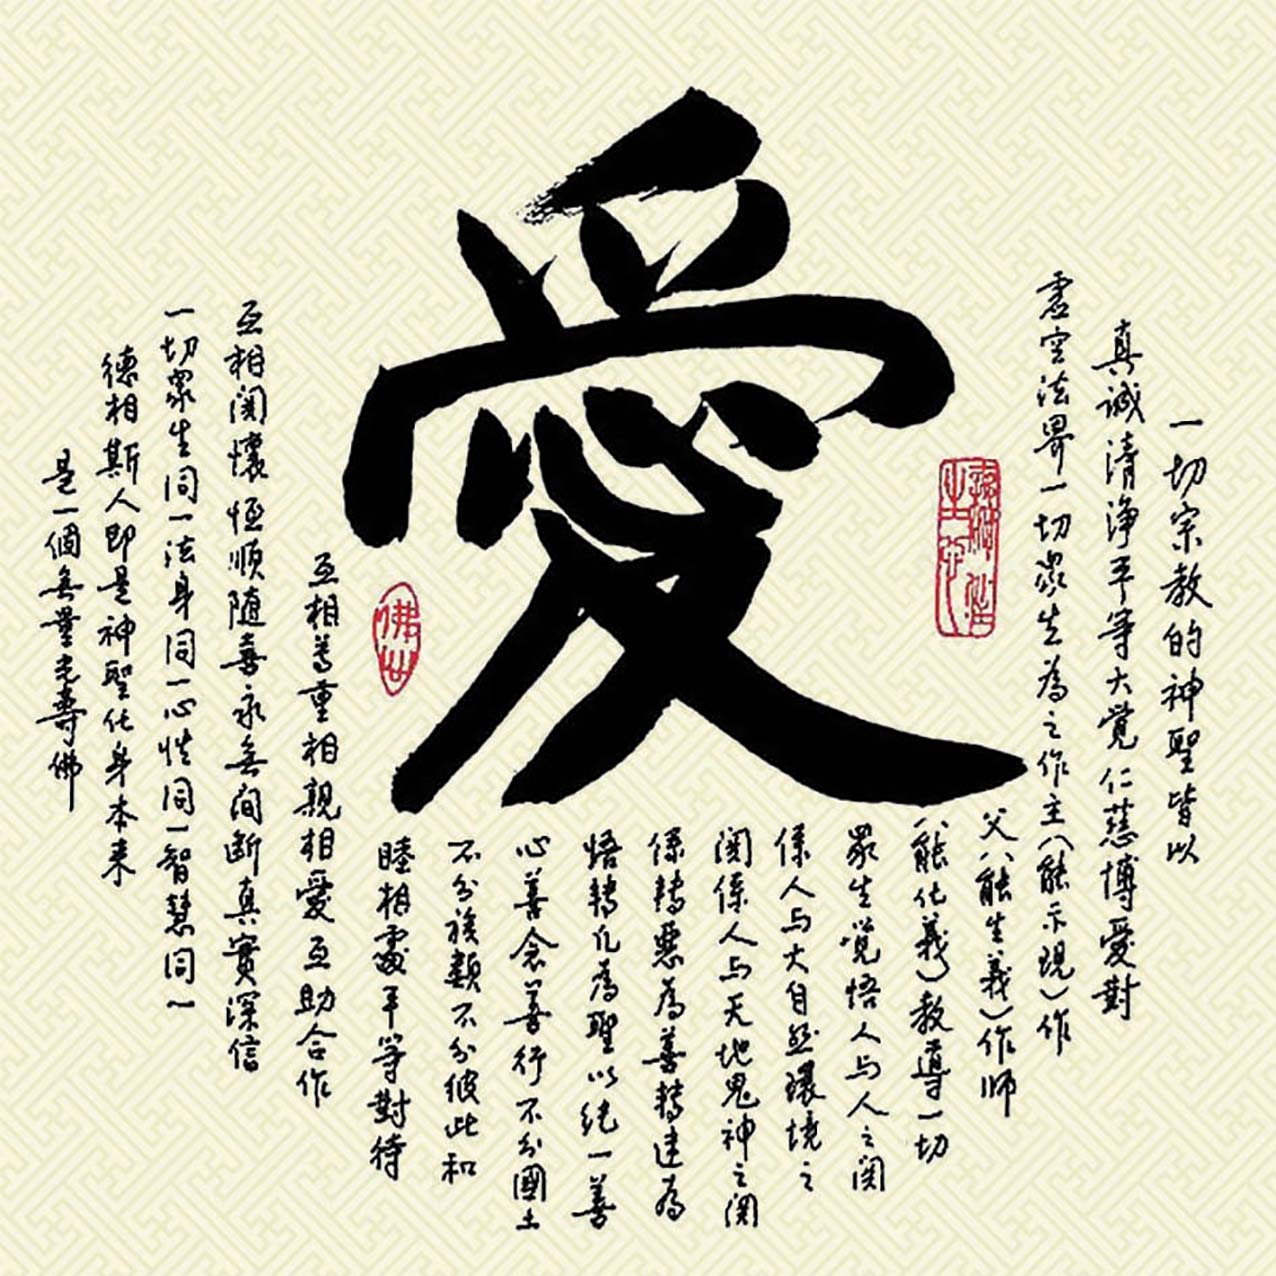 愛
一切宗教的神聖皆以
真誠清淨平等大覺仁慈博愛對
虛空法界一切眾生為之作主（能示現）作
父（能生義）作師
（能化義）教導一切
眾生覺悟人与人之関
係人与大自然環境之
関係人与天地鬼神之関
係轉惡為善轉迷為
悟轉凡為聖以純一善
心善念善行不分國土
不分族類不分彼此和
睦相處平等對待
互相尊重相親相愛互助合作
互相関懷恆順随喜永無间断真實深信
一切眾生同一法身同一心性同一智慧同一
德相斯人即是神聖化身本来
是一個無量光壽佛
佛